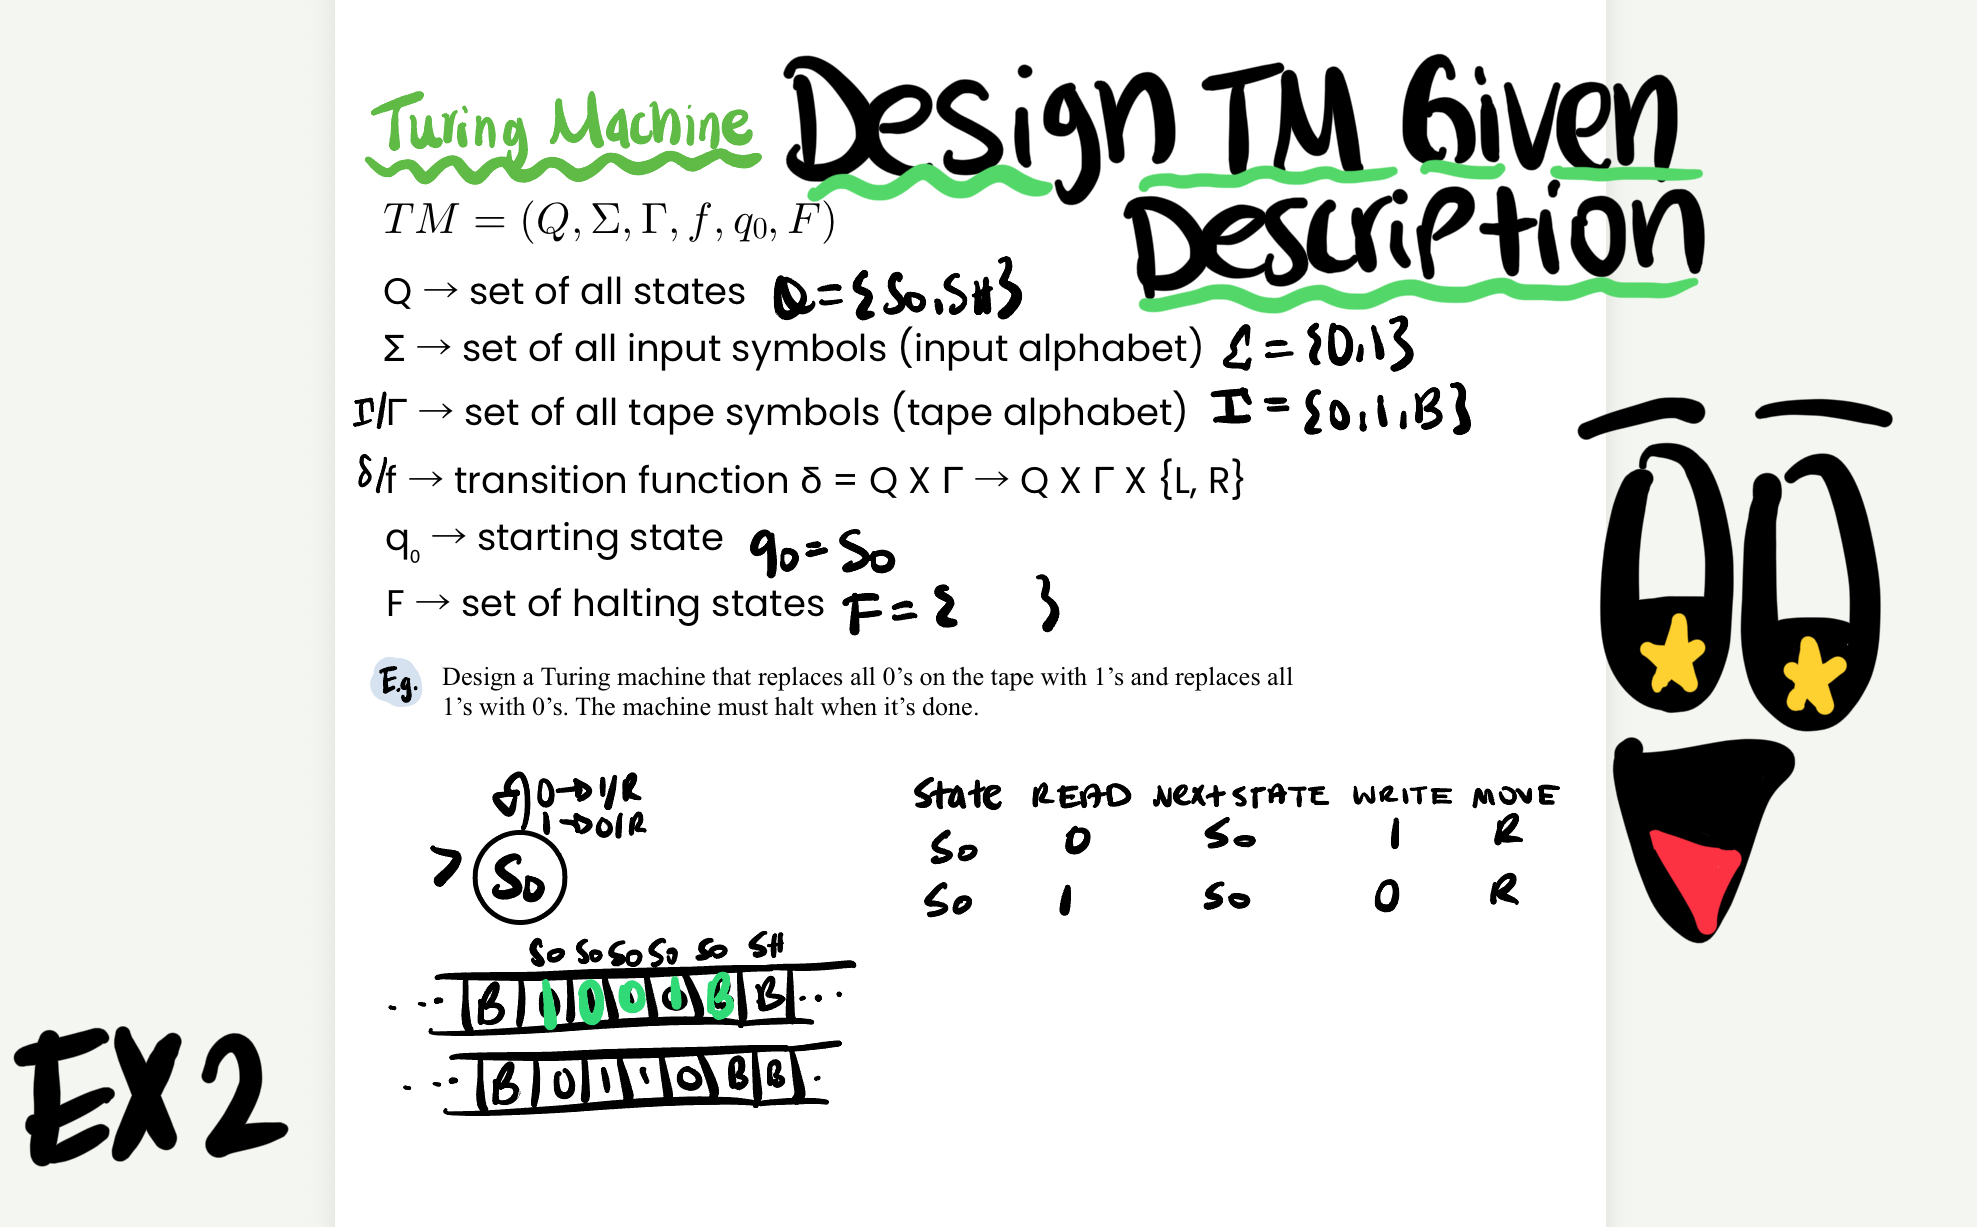 Turing Machine Design TM Given
Description
TM = (Q, Σ, Γ, f, q₀, F)
Q → set of all states Q={S0,SH}
Σ → set of all input symbols (input alphabet) Σ={0,1}
I/Γ → set of all tape symbols (tape alphabet) I={0,1,B}
δ/f → transition function δ = Q X Γ → Q X Γ X {L, R}
q₀ → starting state q0=S0
F → set of halting states F={ }
E.g. Design a Turing machine that replaces all 0's on the tape with 1's and replaces all
1's with 0's. The machine must halt when it's done.
0→1/R
1→0/R
> S0
State READ NEXT STATE WRITE MOVE
S0 0 S0 1 R
S0 1 S0 0 R
S0 S0 S0 S0 S0 SH
... B 1 0 0 1 B B ...
... B 0 1 1 0 B B .
EX2